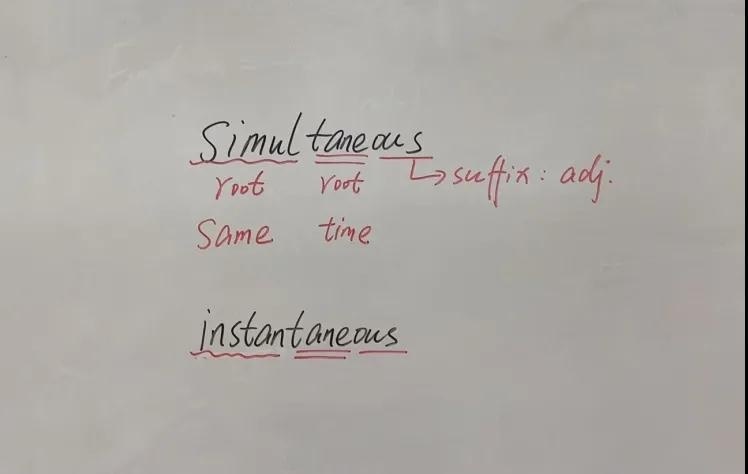 Simultaneous
root root ↳ suffix: adj.
Same time
instantaneous